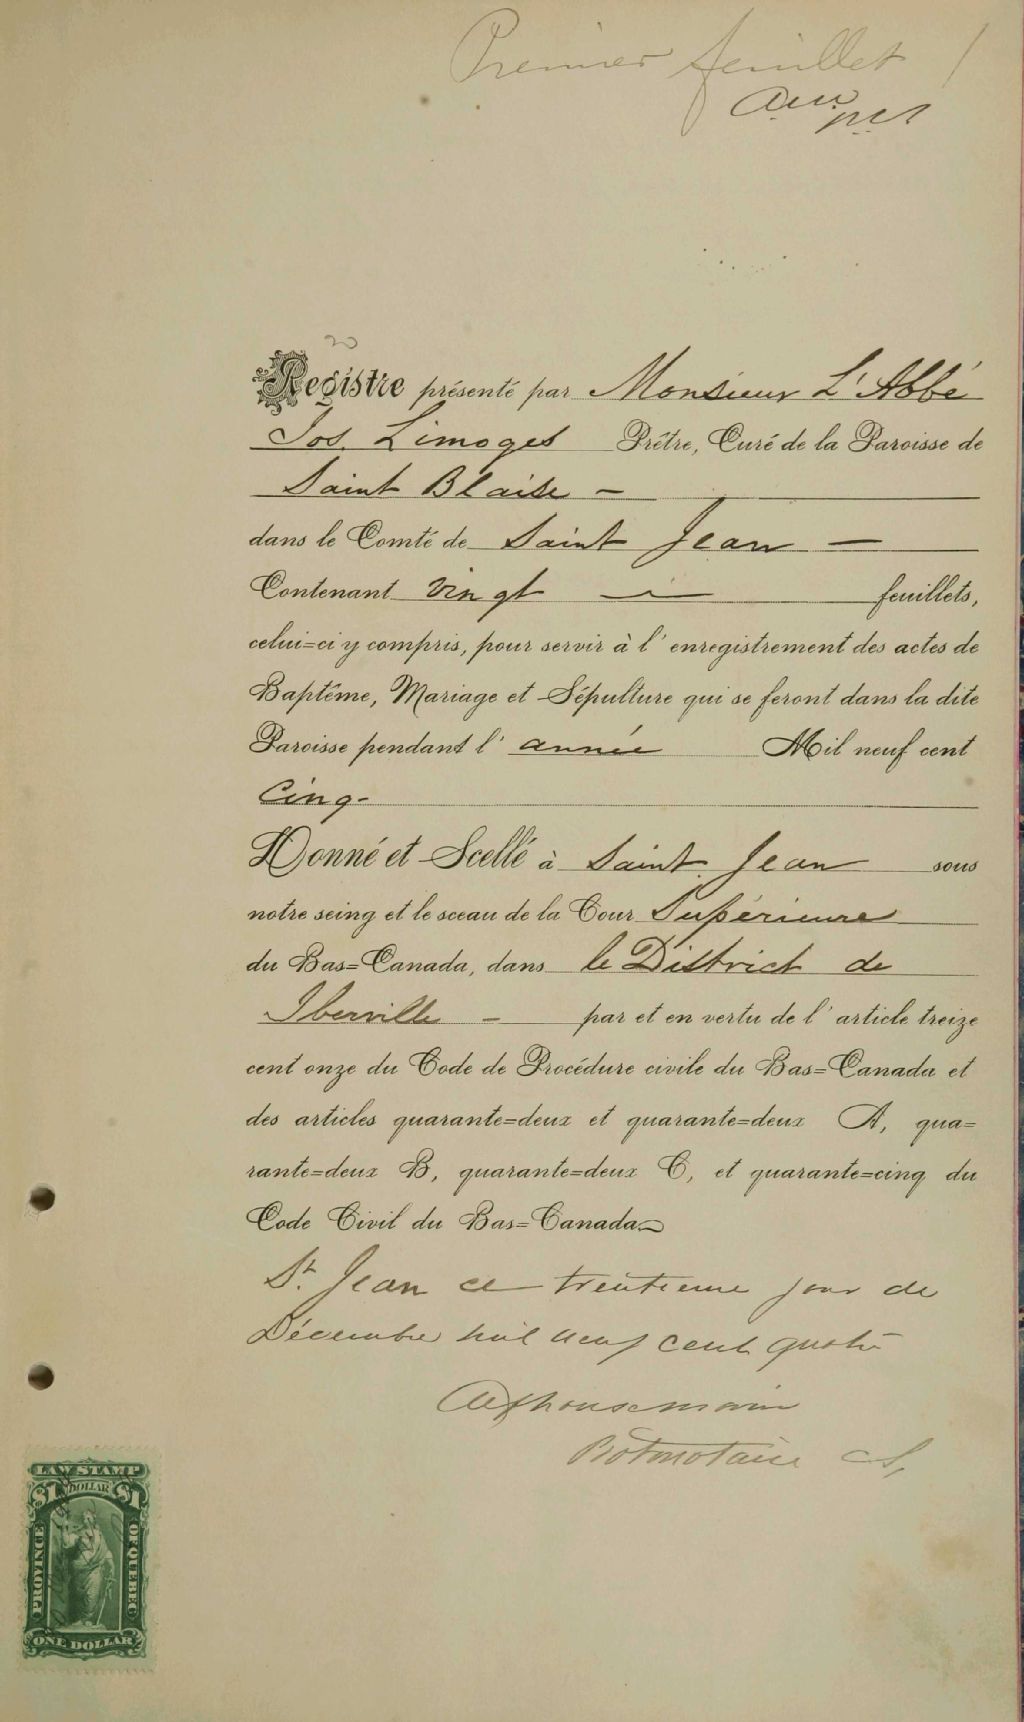 Premier feuillet 1
20
Registre présenté par Monsieur L'Abbé
Jos. Limoges Prêtre, Curé de la Paroisse de
Saint Blaise -
dans le Comté de Saint Jean -
Contenant vingt - feuillets,
celui=ci y compris, pour servir à l'enregistrement des actes de
Baptême, Mariage et Sépulture qui se feront dans la dite
Paroisse pendant l'année Mil neuf cent
Cinq-
Donné et Scellé à Saint Jean sous
notre seing et le sceau de la Cour Supérieure
du Bas=Canada, dans le District de
Iberville - par et en vertu de l'article treize
cent onze du Code de Procédure civile du Bas=Canada et
des articles quarante=deux et quarante=deux A, qua=
rante=deux B, quarante=deux C, et quarante=cinq du
Code Civil du Bas=Canada
St. Jean ce trentieme jour de
Décembre mil neuf cent quatre
Alphonse Morin
Protonotaire C.S.
LAW STAMP
$1 DOLLAR $1
PROVINCE OF QUEBEC
ONE DOLLAR